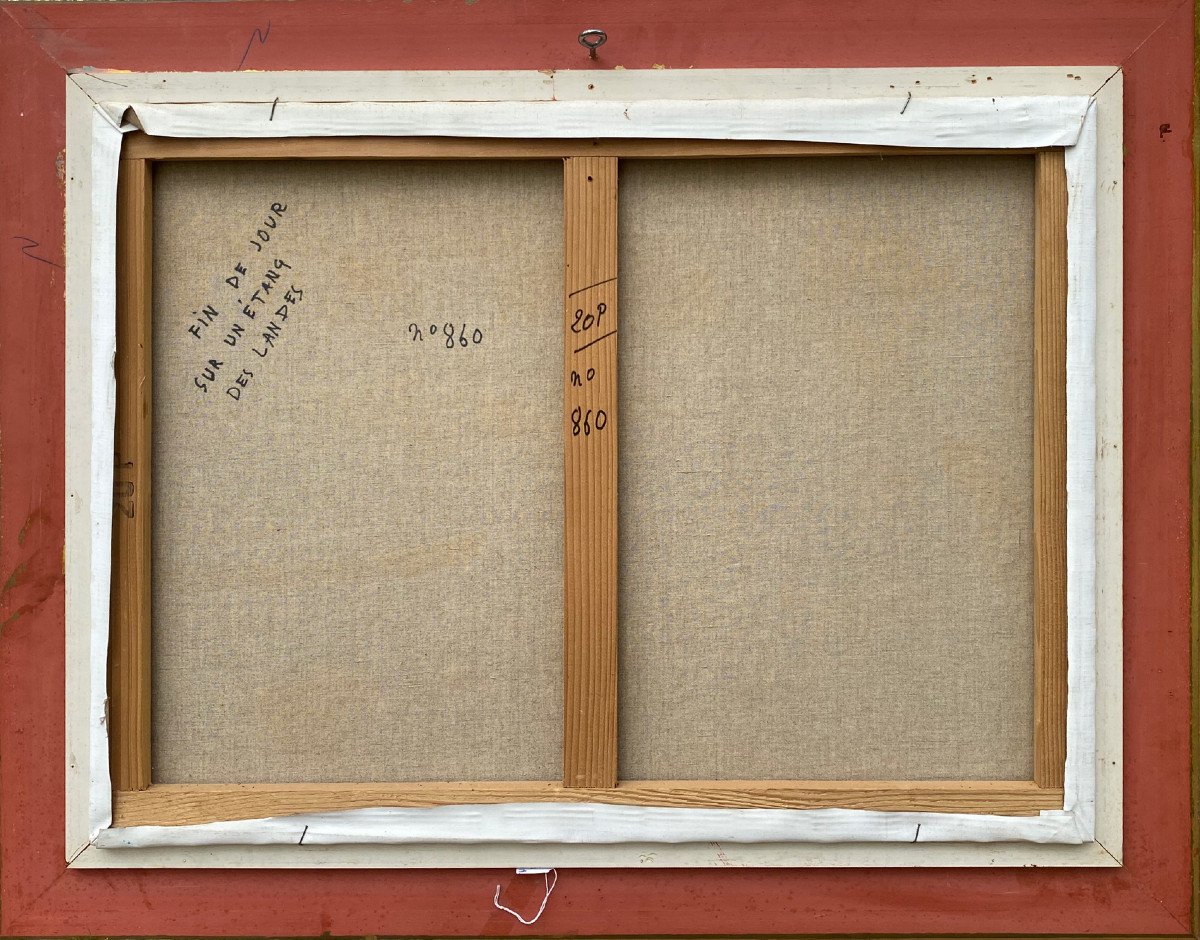 FIN DE JOUR
SUR UN ÉTANG
DES LANDES
n° 860
20P
n°
860